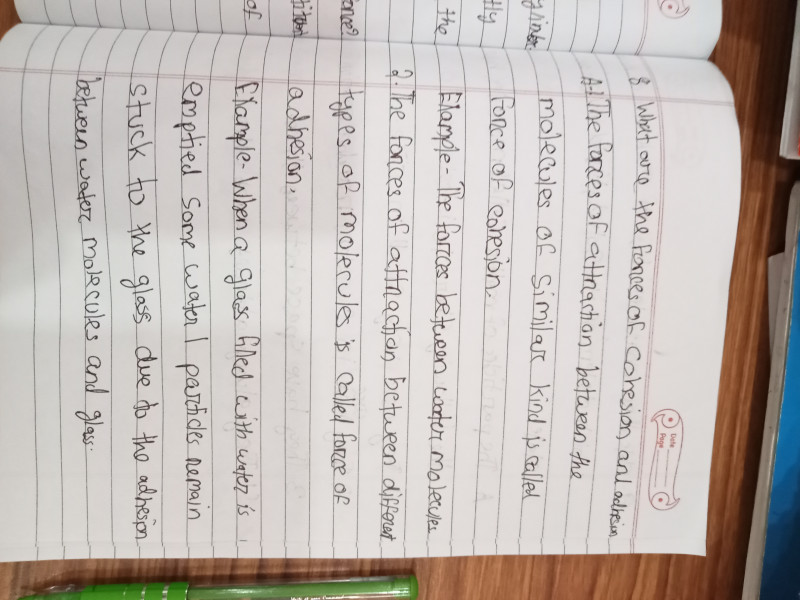 Date
Page
8. What are the forces of cohesion and adhesion
A.1. The forces of attraction between the
molecules of similar kind is called
force of cohesion.
Example - The forces between water molecules
2. The forces of attraction between different
types of molecules is called force of
adhesion.
Example - When a glass filled with water is
emptied some water particles remain
stuck to the glass due to the adhesion
between water molecules and glass.
tly
the
of